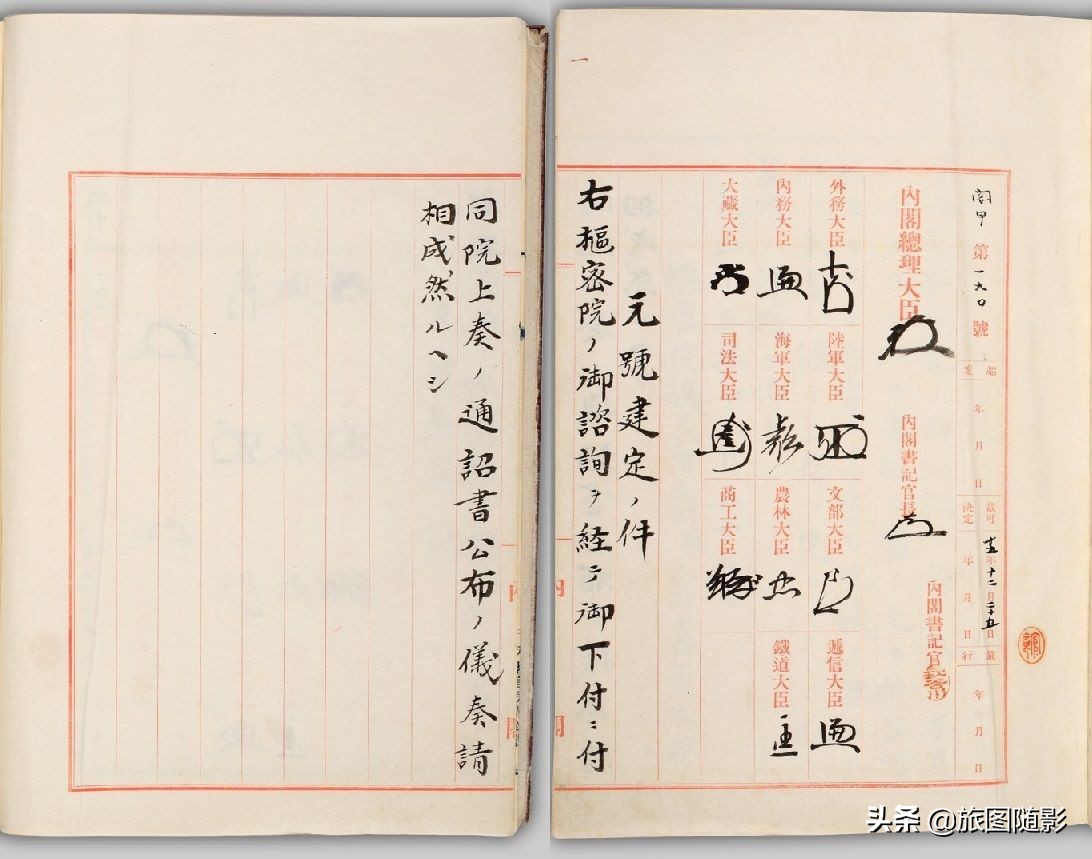 一
閣甲第一九〇號
起案 年 月 日
裁可 十二月二十五日
決定 年 月 日
施行 年 月 日
內閣總理大臣
內閣書記官長
內閣書記官
外務大臣
陸軍大臣
文部大臣
遞信大臣
內務大臣
海軍大臣
農林大臣
鐵道大臣
大藏大臣
司法大臣
商工大臣
元號建定ノ件
右樞密院ノ御諮詢ヲ経テ御下付ニ付
同院上奏ノ通詔書公布ノ儀奏請
相成然ルヘシ
內閣
头条 @旅图随影